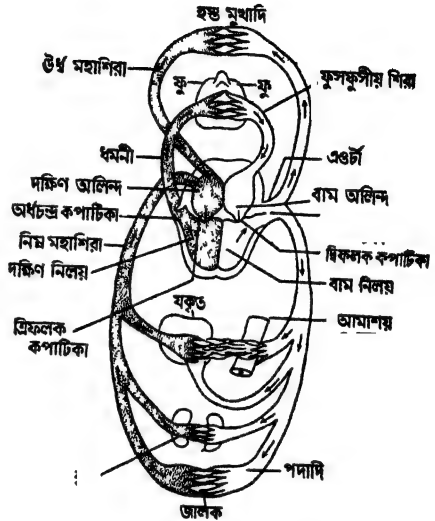 হস্ত মুখাদি
ঊর্ধ্ব মহাশিরা
ফু
ফু
ফুসফুসীয় শিরা
ধমনী
এওর্টা
দক্ষিণ অলিন্দ
বাম অলিন্দ
অর্ধচন্দ্র কপাটিকা
নিম্ন মহাশিরা
দ্বিফলক কপাটিকা
দক্ষিণ নিলয়
বাম নিলয়
যকৃত
ত্রিফলক
কপাটিকা
আমাশয়
পদাদি
জালক